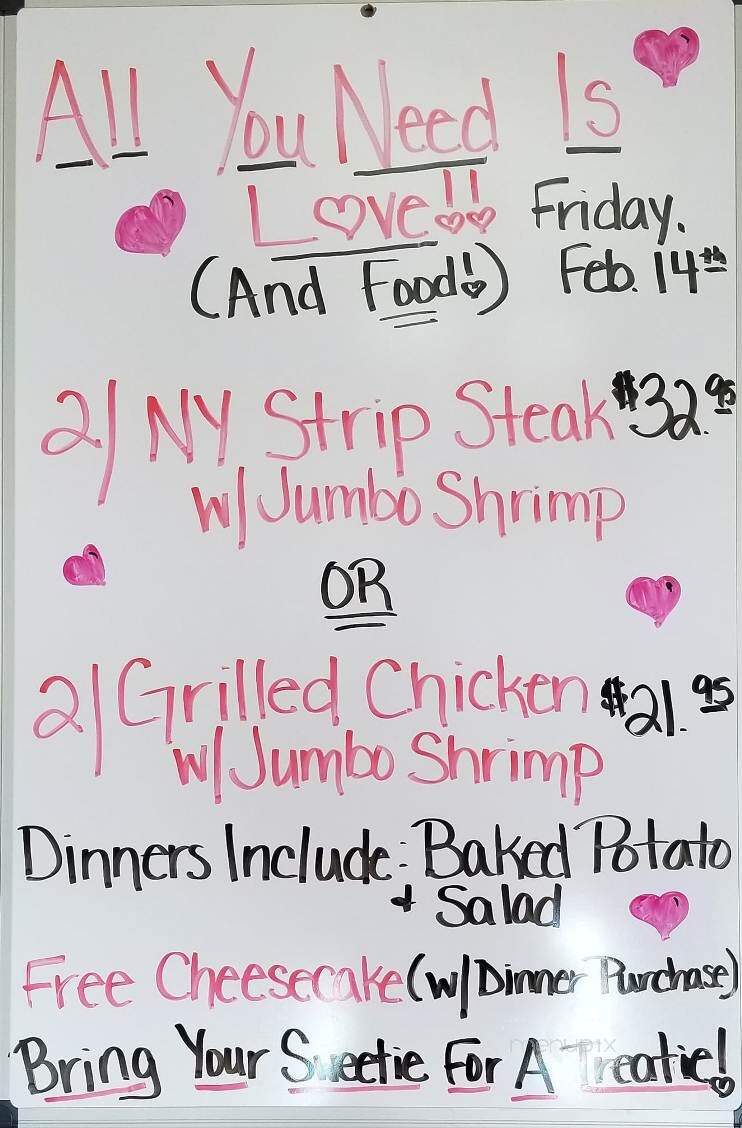 All You Need Is
Love!!
Friday,
(And Food!)
Feb. 14th
2/ NY Strip Steak $32.95
w/ Jumbo Shrimp
OR
2/ Grilled Chicken $21.95
w/ Jumbo Shrimp
Dinners Include: Baked Potato
+ Salad
Free Cheesecake (w/ Dinner Purchase)
menupix
Bring Your Sweetie For A Treatie!